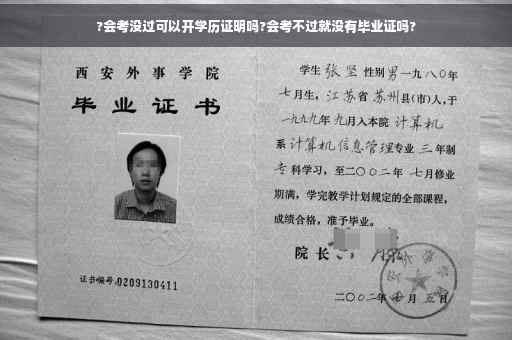 ?会考没过可以开学历证明吗?会考不过就没有毕业证吗?
西安外事学院
毕业证书
证书编号:0209130411
学生 张坚 性别 男 一九八〇年
七月生, 江苏省 苏州县(市)人,于
一九九九年 九月入本院 计算机
系 计算机信息管理专业 三 年制
专 科学习, 至二〇〇二年 七月修业
期满, 学完教学计划规定的全部课程,
成绩合格, 准予毕业。
院长
二〇〇二年 月 五日